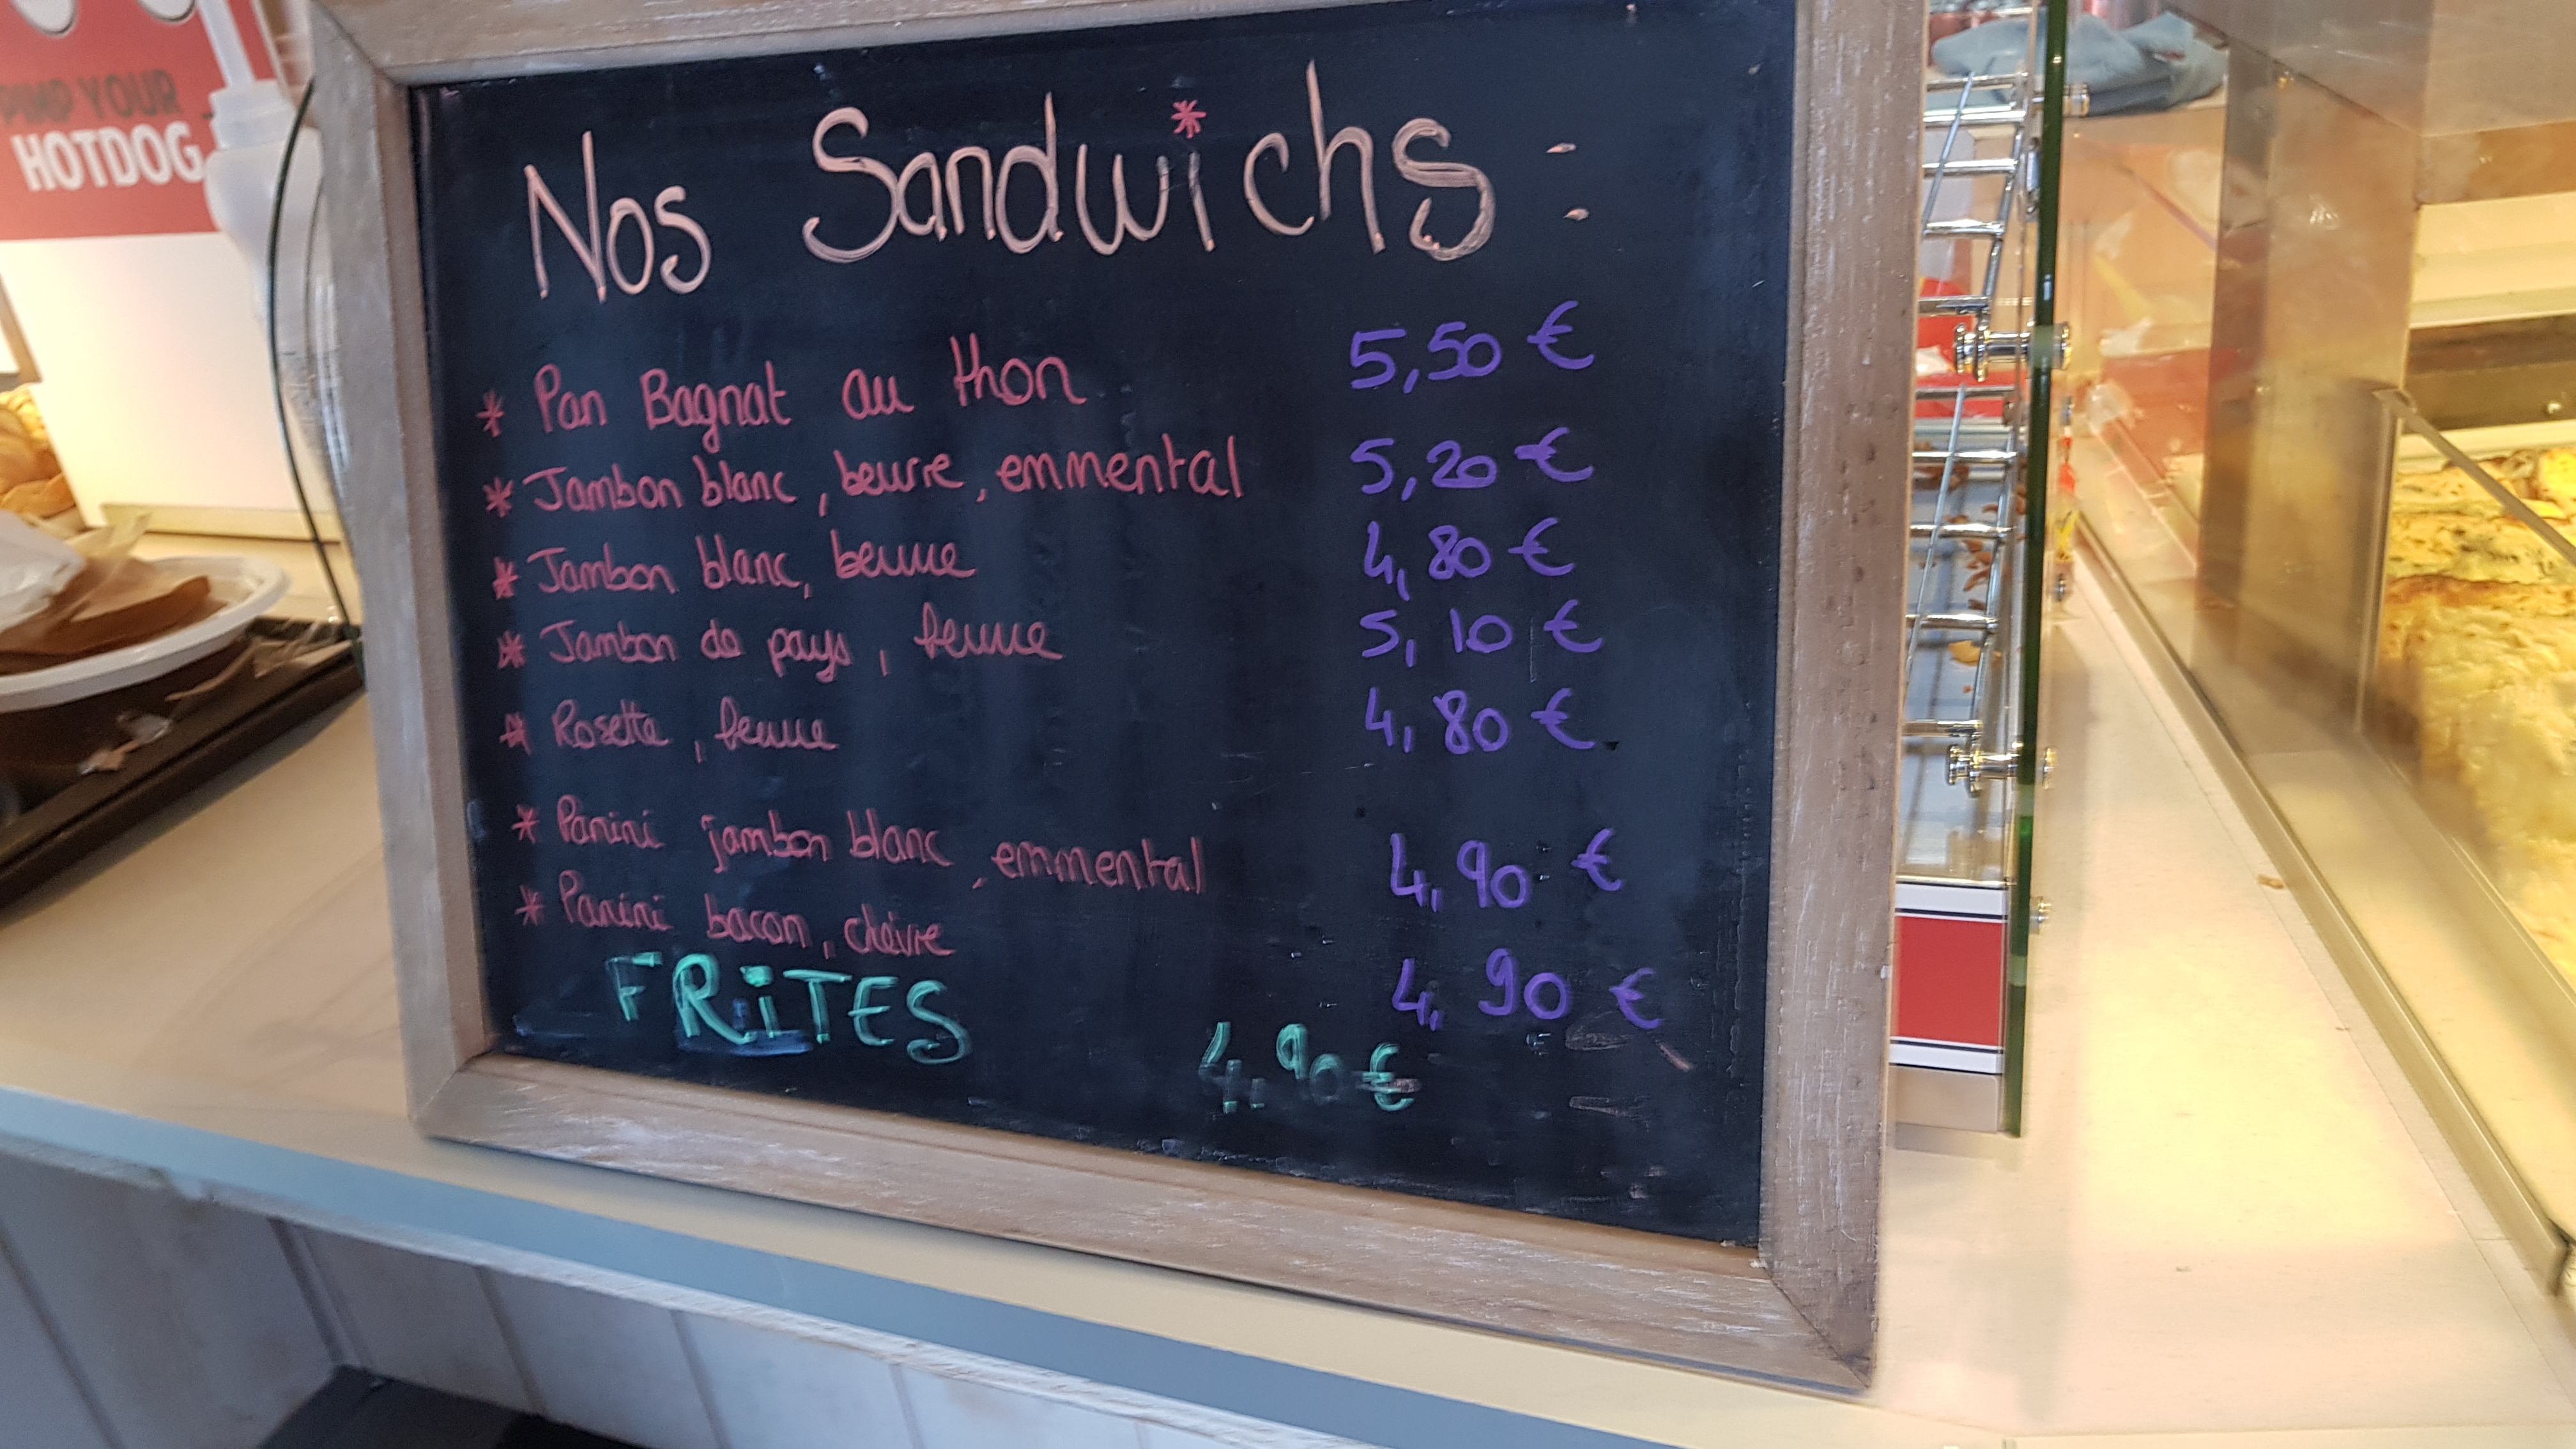 PIMP YOUR
HOTDOG
Nos Sandwichs :
* Pan Bagnat au thon 5,50 €
* Jambon blanc, beurre, emmental 5,20 €
* Jambon blanc, beurre 4,80 €
* Jambon de pays, beurre 5,10 €
* Rosette, beurre 4,80 €
* Panini jambon blanc, emmental 4,90 €
* Panini bacon, chèvre 4,90 €
FRiTES 4,90 €